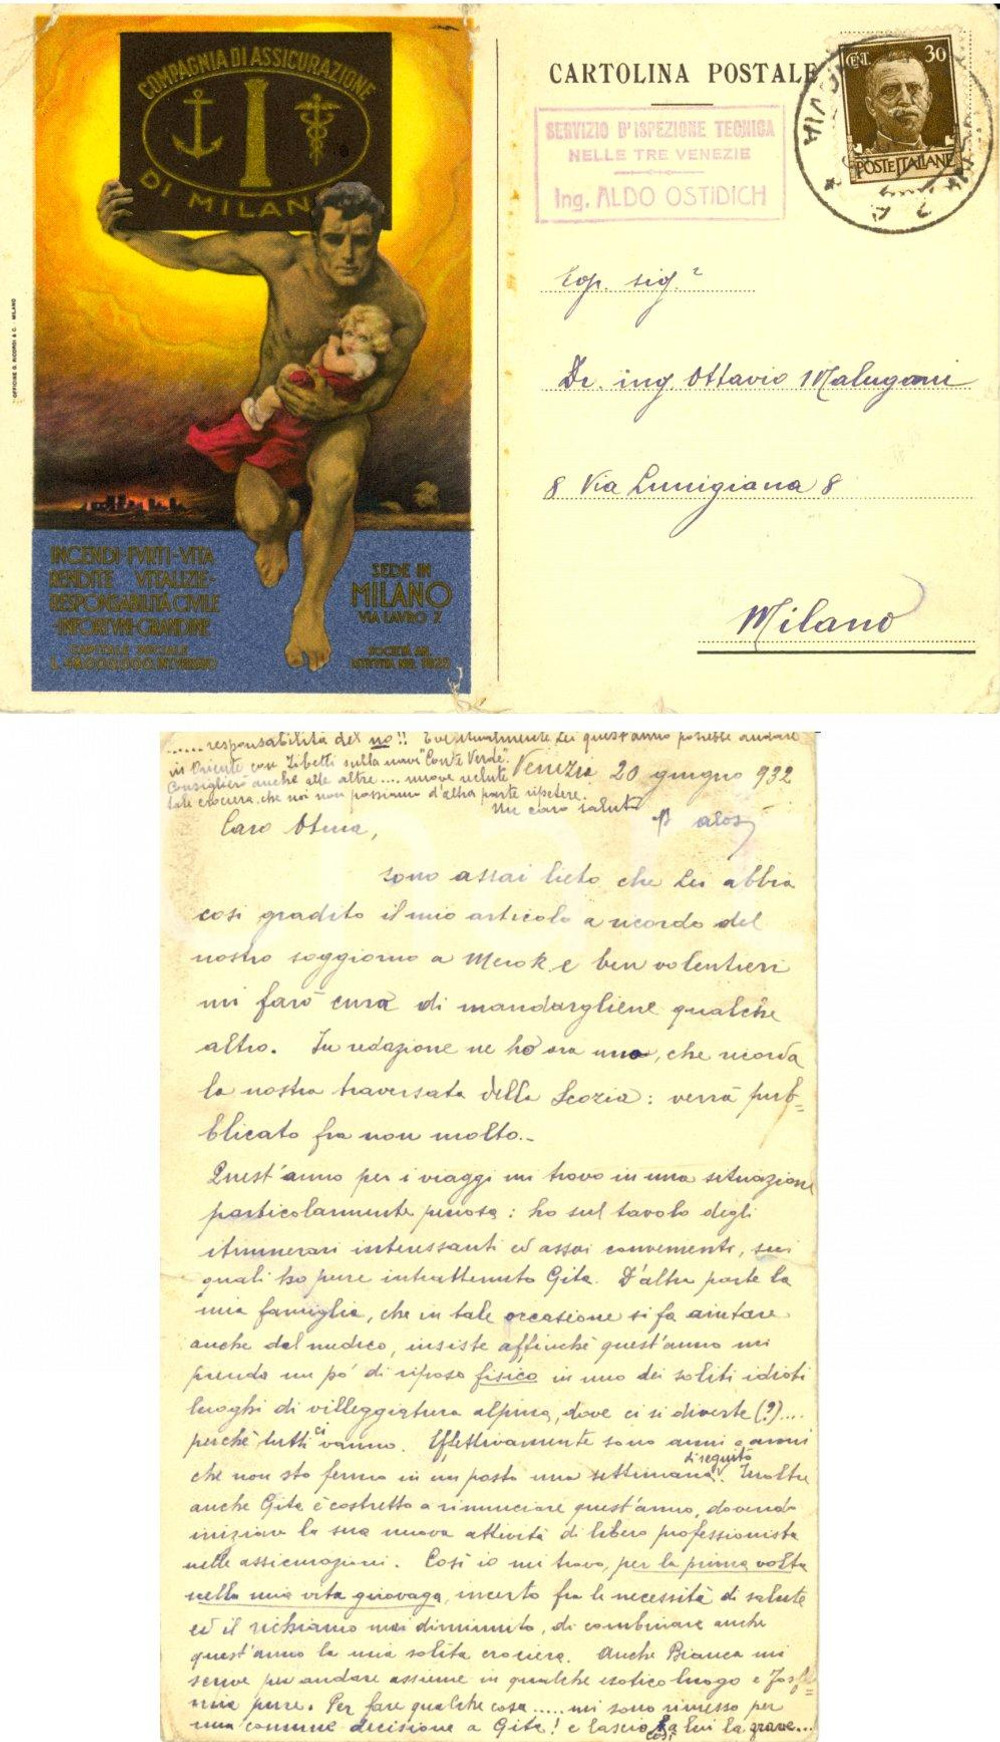 COMPAGNIA DI ASSICURAZIONE
DI MILANO
OFFICINE G. RICORDI & C. MILANO
INCENDI-FVRTI-VITA
RENDITE VITALIZIE-
RESPONSABILITÀ CIVILE
-INFORTVNI-GRANDINE
CAPITALE SOCIALE
SEDE IN
MILANO
VIA LAVRO 7
SOCIETÀ AN.
CARTOLINA POSTALE
SERVIZIO D'ISPEZIONE TECNICA
NELLE TRE VENEZIE
Ing. ALDO OSTIDICH
CENT. 30
POSTE ITALIANE
Egr. sig.
Dr. ing. Ottavio Malugani
8 Via Lunigiana 8
Milano
...... responsabilità del no!! Eventualmente Lei quest'anno potrebbe andare
in Oriente con Zibetti sulla nave "Conte Verde".
Consiglierò anche alle altre .... nuove reclute
tale crociera, che noi non possiamo d'altra parte ripetere.
Un caro saluto
Venezia 20 giugno 932
Caro
sono assai lieto che Lei abbia
così gradito il mio articolo a ricordo del
nostro soggiorno a Merok e ben volentieri
mi farò cura di mandargliene qualche
altro. In redazione ne ho ora uno, che ricorda
la nostra traversata della Scozia: verrà pub=
blicato fra non molto.-
Quest'anno per i viaggi mi trovo in una situazione
particolarmente penosa: ho sul tavolo degli
itinerari interessanti ed assai convenienti, sui
quali ho pure intrattenuto Gite. D'altra parte la
mia famiglia, che in tale occasione si fa aiutare
anche dal medico, insiste affinchè quest'anno mi
prenda un pò di riposo fisico in uno dei soliti idioti
luoghi di villeggiatura alpina, dove ci si diverte (?)....
perchè tutti ci vanno. Effettivamente sono anni e anni
che non sto fermo in un posto una settimana di seguito. Inoltre
anche Gite è costretto a rinunciare quest'anno, dovendo
iniziare la sua nuova attività di libero professionista
nelle assicurazioni. Così io mi trovo, per la prima volta
nella mia vita girovaga, incerto fra le necessità di salute
ed il richiamo mai diminuito, di combinare anche
quest'anno la mia solita crociera. Anche Bianca mi
scrive per andare assieme in qualche esotico luogo e
mia pure. Per fare qualche cosa ..... mi sono rimesso per
una comune decisione a Gite! e lascio così a lui la grave...